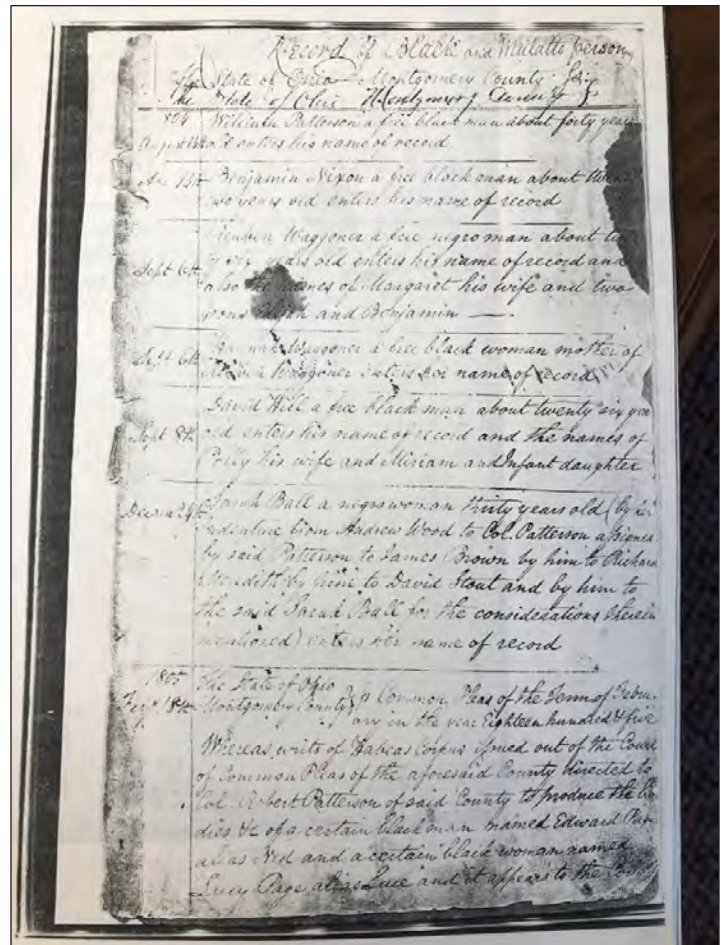 Record of Black and Mulatto person
The State of Ohio Montgomery County
the State of Ohio Montgomery County
804 William Patterson a free black man about forty years
August enters his name of record
Benjamin Nixon a free black man about
two years old enters his name of record
Reuben Waggoner a free negro man about
Sept 6th six years old enters his name of record and
also the names of Margaret his wife and two
sons and Benjamin —
Sept 6th Hannah Waggoner a free black woman mother of
Reuben Waggoner enters her name of record
David Hill a free black man about twenty six
Sept 8th old enters his name of record and the names of
Polly his wife and Miriam and Infant daughter
24th Sarah Ball a negro woman thirty years old (by her
indenture from Andrew Wood to Col. Patterson
by said Patterson to James Brown by him to Richard
Meredith by him to David Stout and by him to
the said Sarah Ball for the considerations therein
mentioned) enters her name of record
1805 The State of Ohio
18th Montgomery County Common Pleas of the Term of
in the year Eighteen hundred & five
Whereas writs of Habeas Corpus issued out of the Court
of Common Pleas of the aforesaid County directed to
Col. Robert Patterson of said County to produce the
dies &c of a certain black man named Edward
alias Ned and a certain black woman named
Lucy Page alias Luce and it appears to the